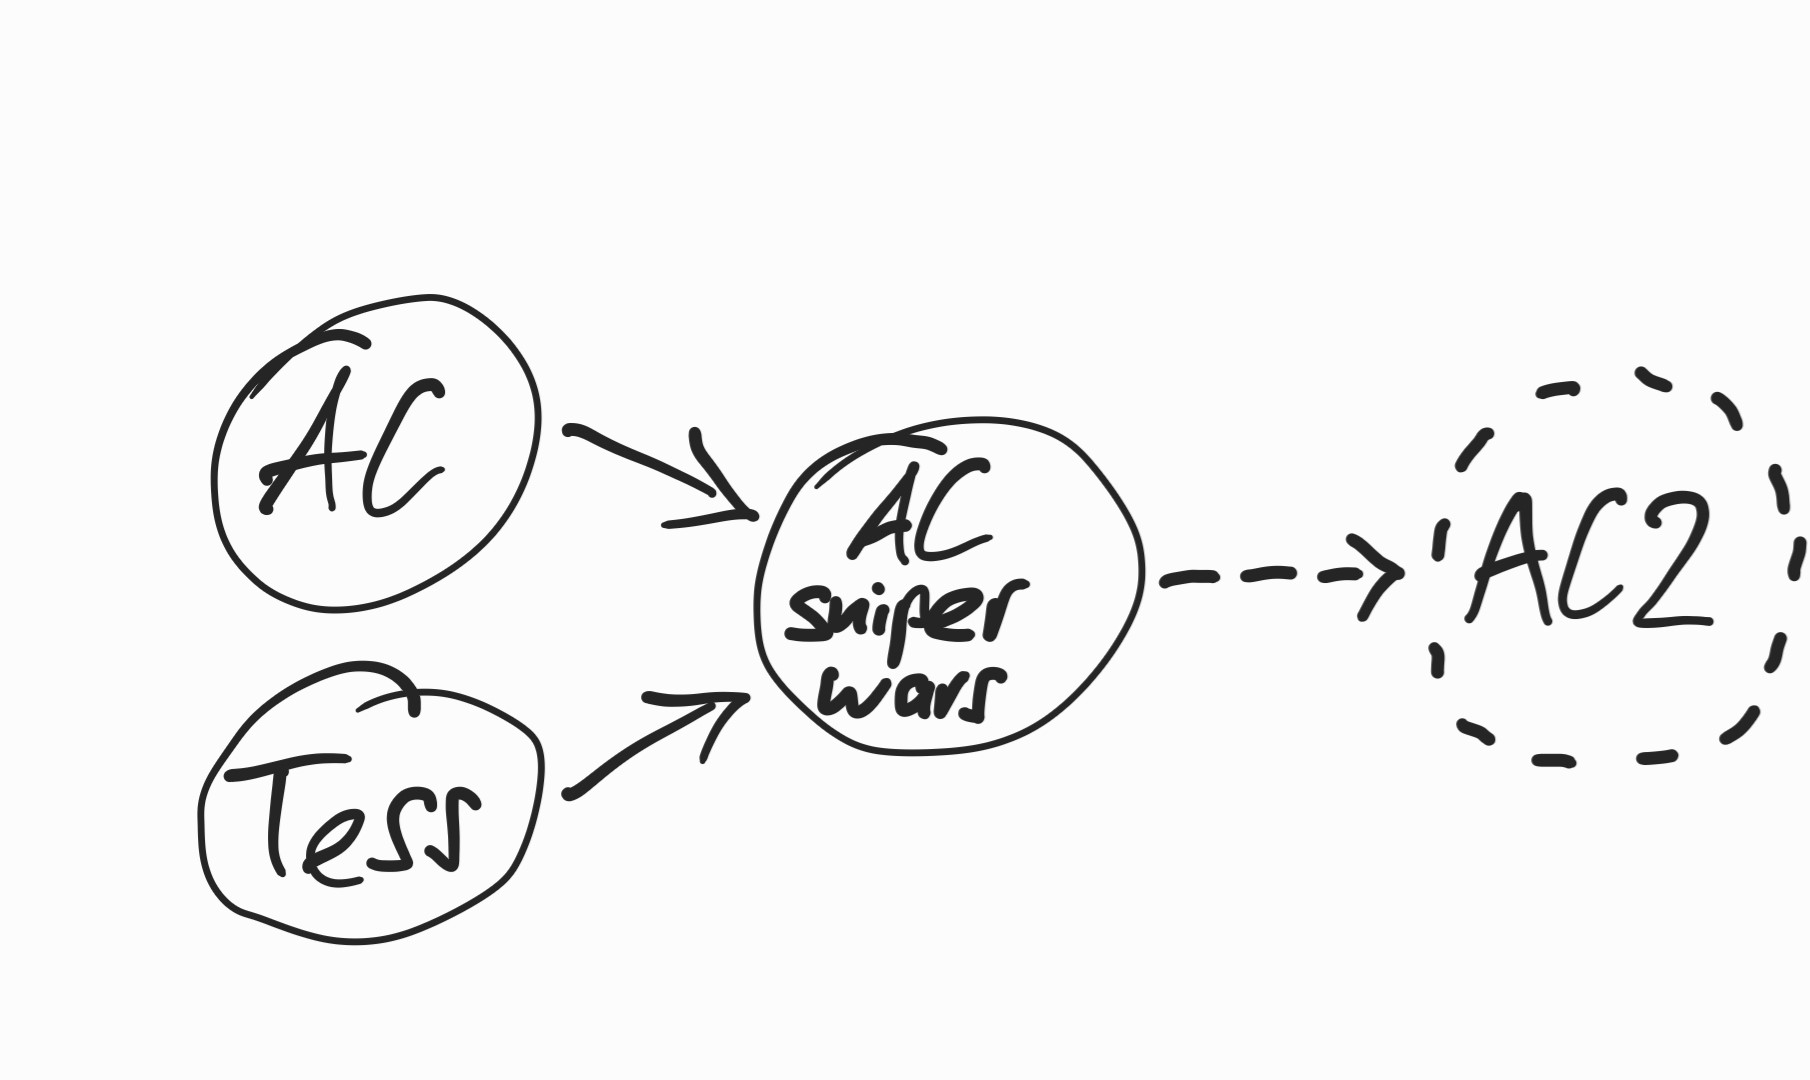 AC
Tess
AC
sniper
wars
AC2